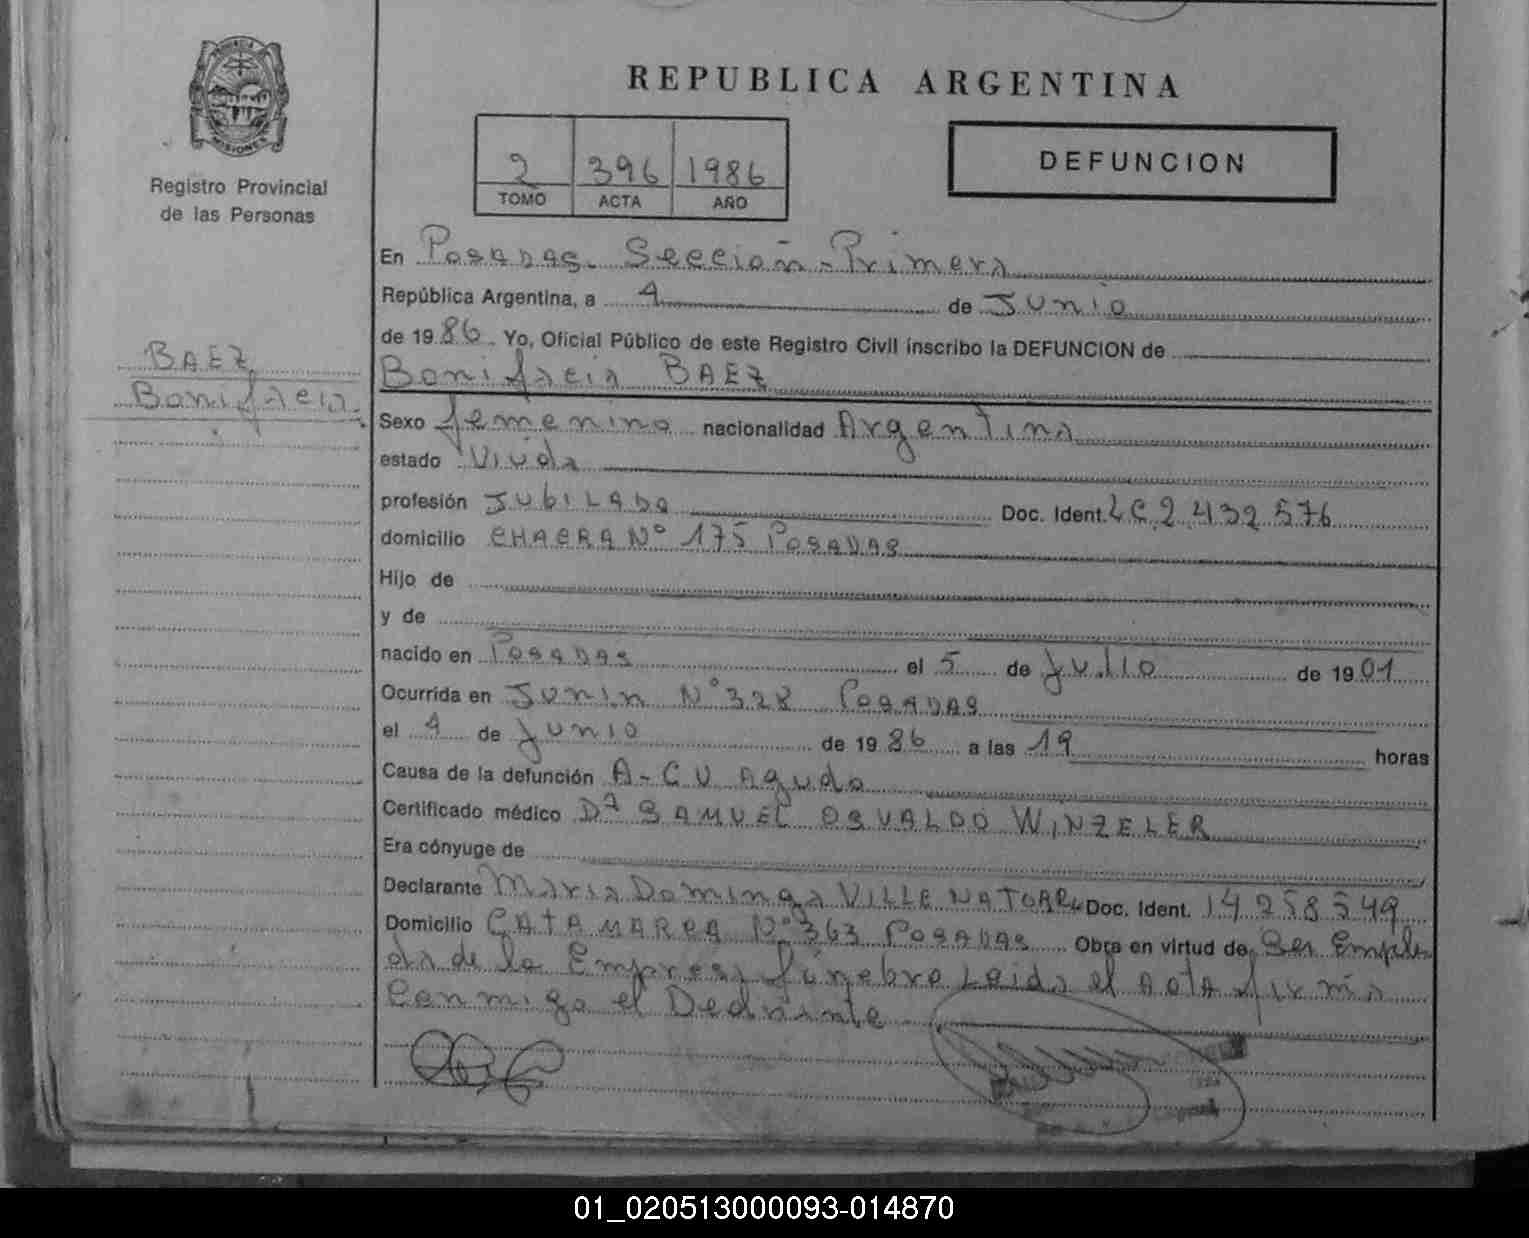 PROVINCIA
MISIONES
Registro Provincial
de las Personas
BAEZ
Bonifacia.
REPUBLICA ARGENTINA
2 396 1986
TOMO ACTA AÑO
DEFUNCION
En Posadas. Sección - Primera
República Argentina, a 4 de Junio
de 1986. Yo, Oficial Público de este Registro Civil inscribo la DEFUNCION de
Bonifacia BAEZ
Sexo femenino nacionalidad Argentina
estado Viuda
profesión JUBILADA Doc. Ident. LC. 2.432.576
domicilio CHACRA Nº 175 POSADAS
Hijo de
y de
nacido en POSADAS el 5 de Julio de 1901
Ocurrida en Junin Nº 328 POSADAS
el 4 de Junio de 1986 a las 19 horas
Causa de la defunción A-C V Aguda
Certificado médico Dr SAMUEL OSVALDO WINZELER
Era cónyuge de
Declarante Maria Dominga VILLE NATOARL Doc. Ident. 14 258 549
Domicilio CATAMARCA Nº 363 POSADAS Obra en virtud de Ser Emplea
da de la Empresa fúnebre Leida el Acta firma
Conmigo el
01_020513000093-014870